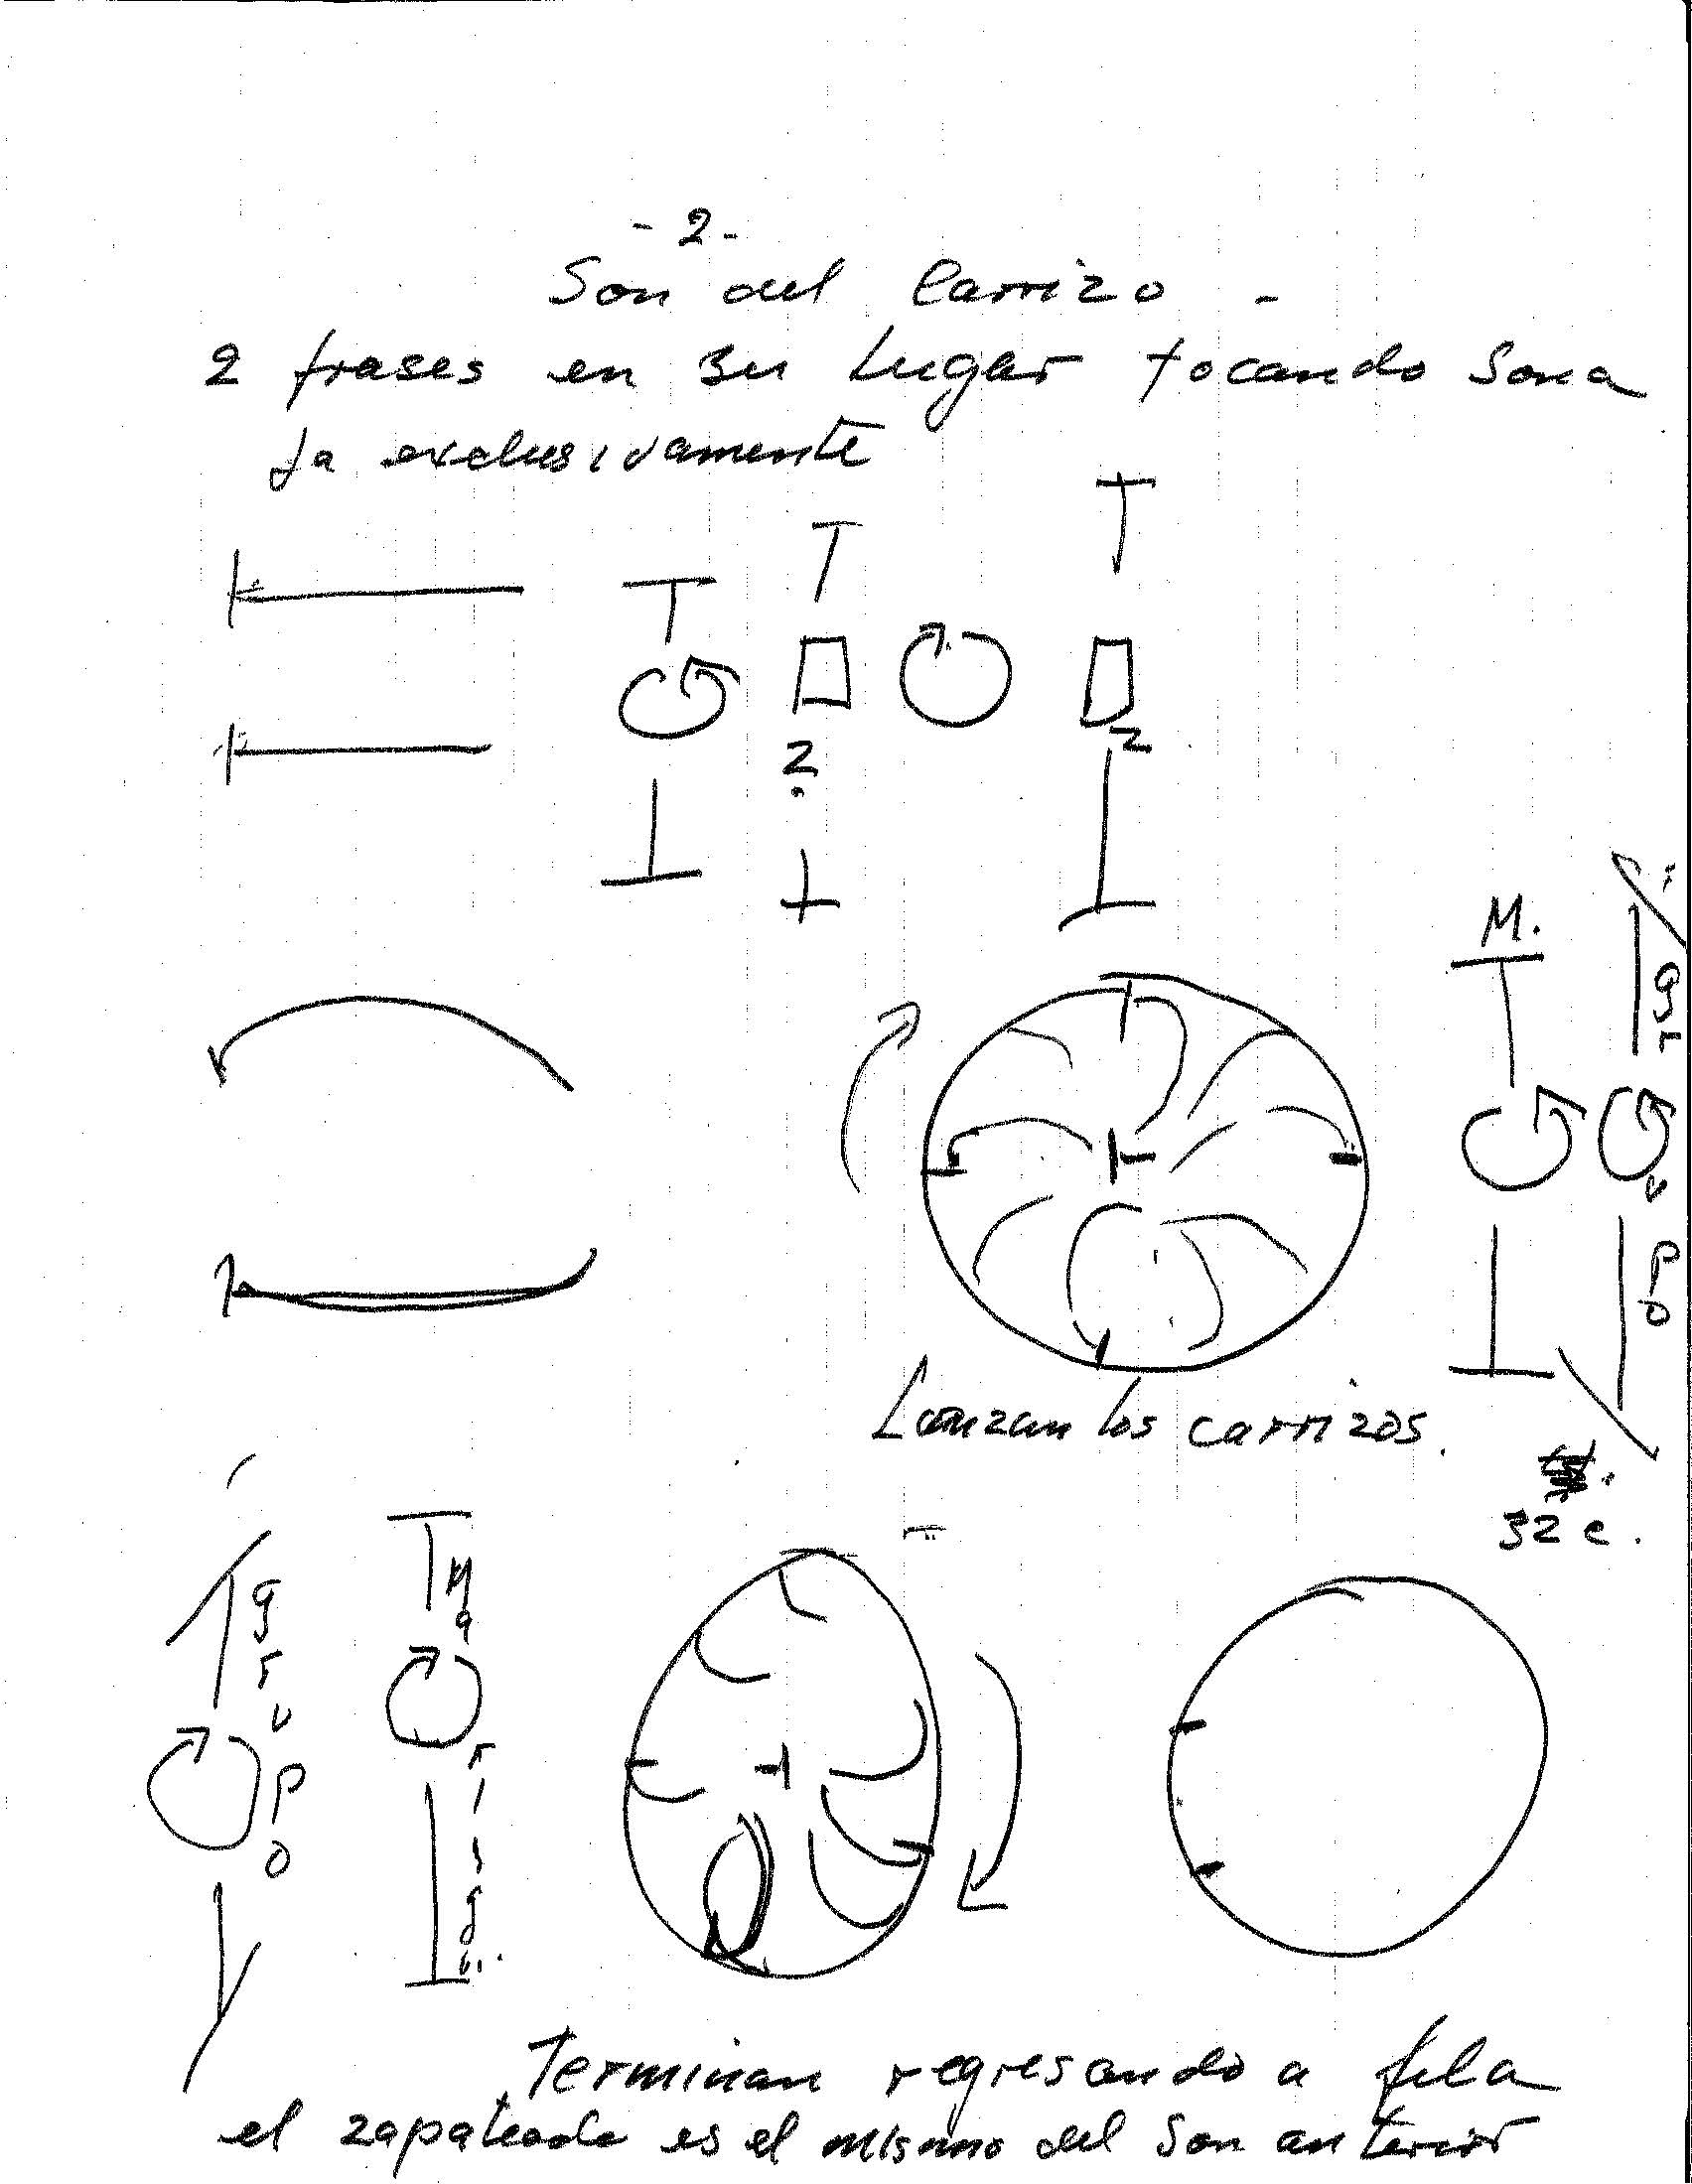 - 2 -
Son del Carrizo -
2 frases en su lugar tocando sona
ja exclusivamente
2
2
M.
grupo
Lanzan los carrizos.
32 c.
grupo
M
Terminan regresando a fila
el zapateado es el mismo del son anterior